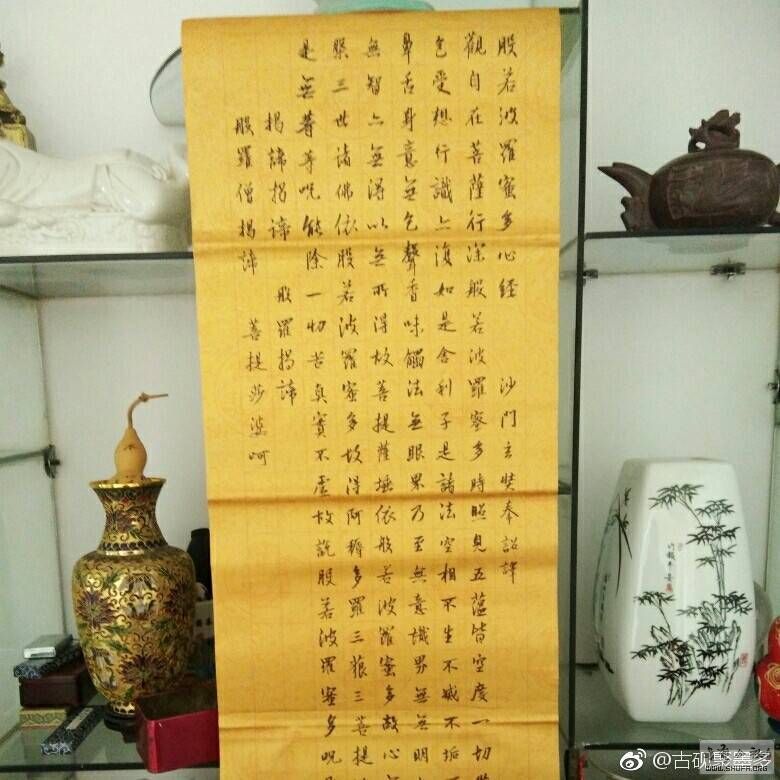 般若波羅蜜多心經 沙門玄奘奉詔譯
觀自在菩薩行深般若波羅蜜多時照見五蘊皆空度一切
色受想行識亦復如是舍利子是諸法空相不生不滅不垢
鼻舌身意無色聲香味觸法無眼界乃至無意識界無無明
無智亦無得以無所得故菩提薩埵依般若波羅蜜多故心
槃三世諸佛依般若波羅蜜多故得阿耨多羅三藐三菩提
是無等等呪能除一切苦真實不虛故說般若波羅蜜多呪
揭諦揭諦 般羅揭諦
般羅僧揭諦 菩提莎婆呵
@古砚聚墨多
WWW.SHUFA.ORG